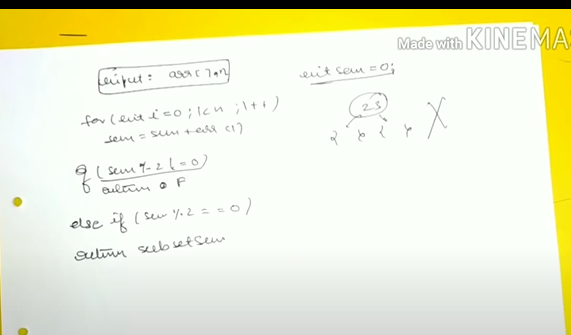 Made with KINEMA
input: arr[], n
int sum = 0;
for(int i=0; i<n; i++)
sum = sum + arr(i)
23
if (sum % 2 != 0)
return F
else if (sum % 2 == 0)
return subsetsum